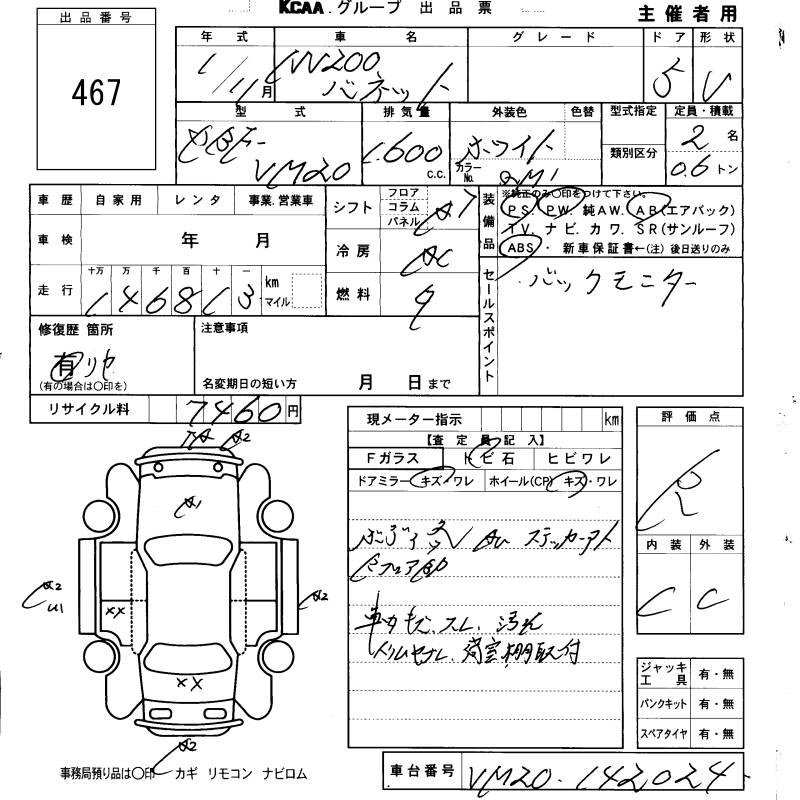 KCAA.グループ 出品票
主催者用
出品番号
467
年式 車名 グレード ドア 形状
NV200
バネット
1/11月
5 V
型式 排気量 外装色 色替 型式指定 定員・積載
VM20
1600 c.c.
ホワイト
カラーNo.
QM1
類別区分
2名
0.6トン
車歴 自家用 レンタ 事業.営業車
車検 年 月
走行 十万 万 千 百 十 一
146813
km
マイル
シフト フロア コラム パネル
AT
冷房 AC
燃料
装備品
※純正のみ〇印をつけて下さい。
PS. PW. 純AW. AB(エアバック)
TV. ナビ. カワ. SR(サンルーフ)
ABS・ 新車保証書←(注) 後日送りのみ
セールスポイント
バックモニター
修復歴 箇所
有 リヤ
(有の場合は〇印を)
注意事項
名変期日の短い方 月 日まで
リサイクル料 7460円
現メーター指示 km
【査定員記入】
Fガラス トビ石 ヒビワレ
ドアミラー キズ・ワレ ホイール(CP) キズ・ワレ
ステッカーアト
スレ. 汚れ
荷室棚取付
評価点
R
内装 外装
C C
A2
A1
A2
U1
XX
A2
XX
A2
ジャッキ工具 有・無
パンクキット 有・無
スペアタイヤ 有・無
事務局預り品は〇印 カギ リモコン ナビロム
車台番号 VM20-142024